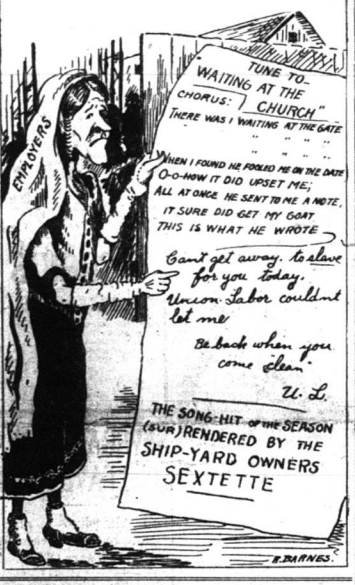 EMPLOYERS
TUNE TO-
"WAITING AT THE
CHURCH"
CHORUS:
THERE WAS I WAITING AT THE GATE
" " " "
" " " "
WHEN I FOUND HE FOOLED ME ON THE DATE
O-O-HOW IT DID UPSET ME;
ALL AT ONCE HE SENT TO ME A NOTE,
IT SURE DID GET MY GOAT
THIS IS WHAT HE WROTE
Can't get away, to slave
for you today.
Union Labor couldnt
let me
Be back when you
come "clean"
U. L.
THE SONG-HIT OF THE SEASON
(SUR)RENDERED BY THE
SHIP-YARD OWNERS
SEXTETTE
R. BARNES.